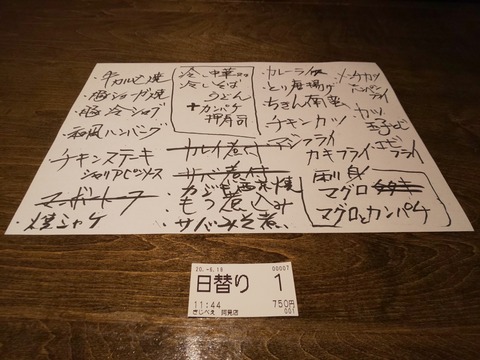 ・牛カルビ焼
・豚ショーガ焼
・豚冷シャブ
・和風ハンバーグ
チキンステーキ
マーボートーフ
・焼シャケ
冷し中華
冷しそば
うどん
+カンパチ
押寿司
カレイ煮付
サバ煮付
もつ煮込み
サバみそ煮
カレーライス
とり唐揚げ
ちきん南蛮
チキンカツ
アジフライ
カキフライ
刺身
マグロ
マグロとカンパチ
メンチカツ
ハムカツ
フライ
カツ
玉子とじ
エビ
フライ
20.-6.18
00007
日替り 1
11:44
750円
きじべえ 阿見店
001